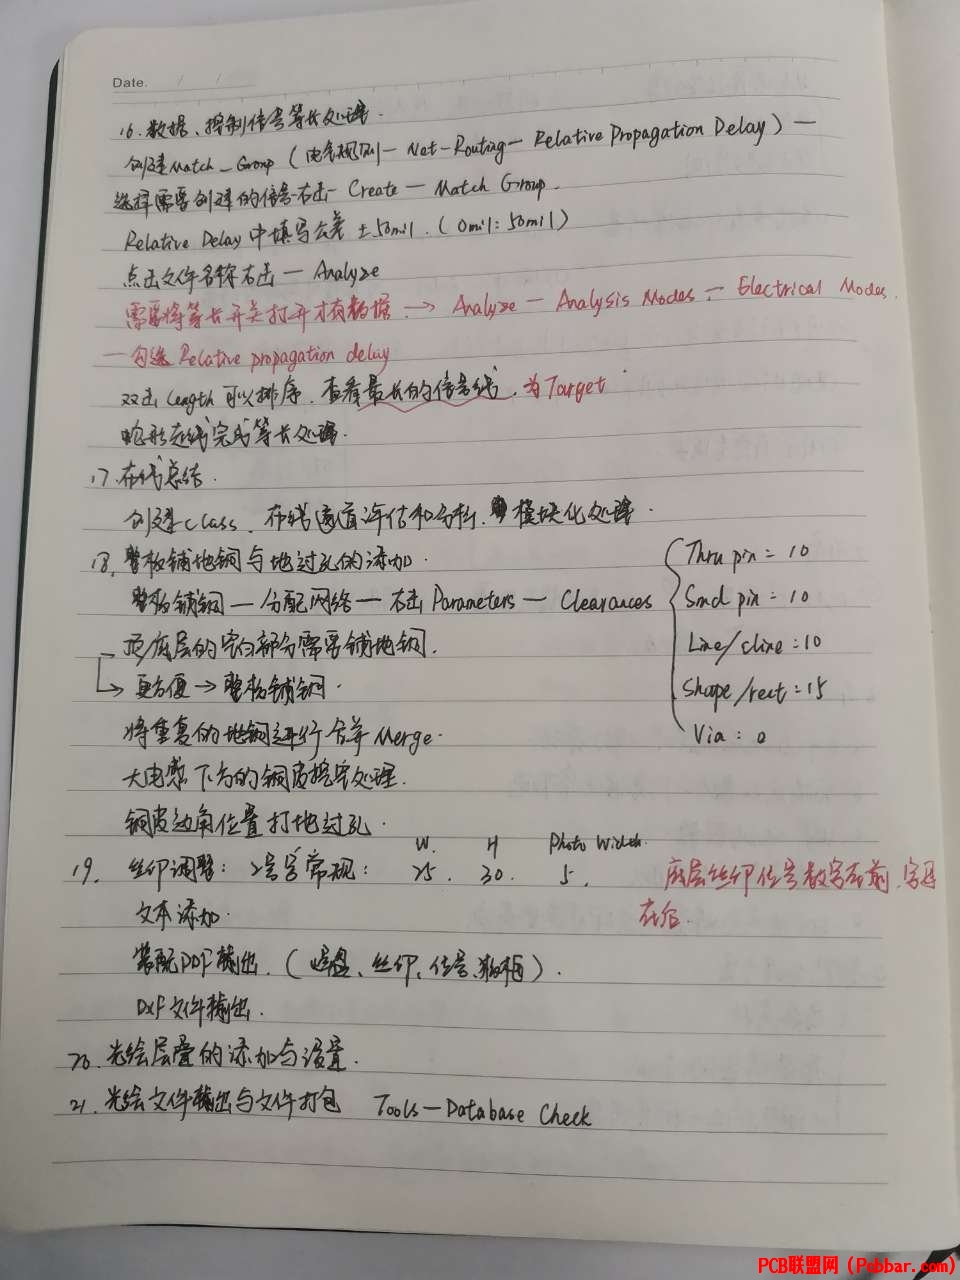 Date. / /
16. 数据、控制信号等长处理.
创建Match_Group (电气规则— Net-Routing— Relative Propagation Delay) —
选择需要创建的信号右击— Create — Match Group.
Relative Delay 中填写公差 ±50mil. (0mil: 50mil)
点击文件名称右击 — Analyze
需要将等长开关打开才有数据 → Analyze — Analysis Modes — Electrical Modes.
—勾选 Relative propagation delay
双击 Length 可以排序. 查看最长的信号线, 为Target
蛇形走线完成等长处理.
17. 布线总结.
创建class、布线通道评估和分析、模块化处理.
18. 整板铺地铜与地过孔的添加.
整板铺铜 — 分配网络 — 右击 Parameters — Clearances
Thru pin = 10
Smd pin = 10
Line/cline = 10
Shape/rect = 15
Via: 0
顶底层的空白部分需要铺地铜.
→ 更方便 → 整板铺铜.
将重复的地铜进行合并 Merge.
大电感下方的铜皮挖空处理.
铜皮边角位置打地过孔.
W. H Photo Width.
19. 丝印调整: 2号字常规: 25. 30. 5. 底层丝印位号数字在前, 字母
在后.
文本添加.
装配PDF输出. (焊盘、丝印、位号、板框).
DXF文件输出.
20. 光绘层叠的添加与设置.
21. 光绘文件输出与文件打包 Tools—Database Check
PCB联盟网 (Pcbbar.com)